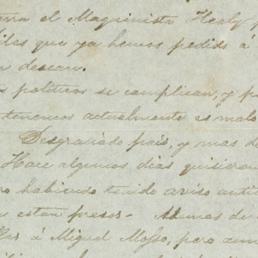 el Maquinista Herly
que ya hemos pedido á
desean.
políticos se complican, y
tenemos actualmente es malo
Desgraciado pais, y mas de
Hace algunos dias quisieron
habiendo tenido aviso anti
estan presos - Ademas de
á Miguel Mosso, pero